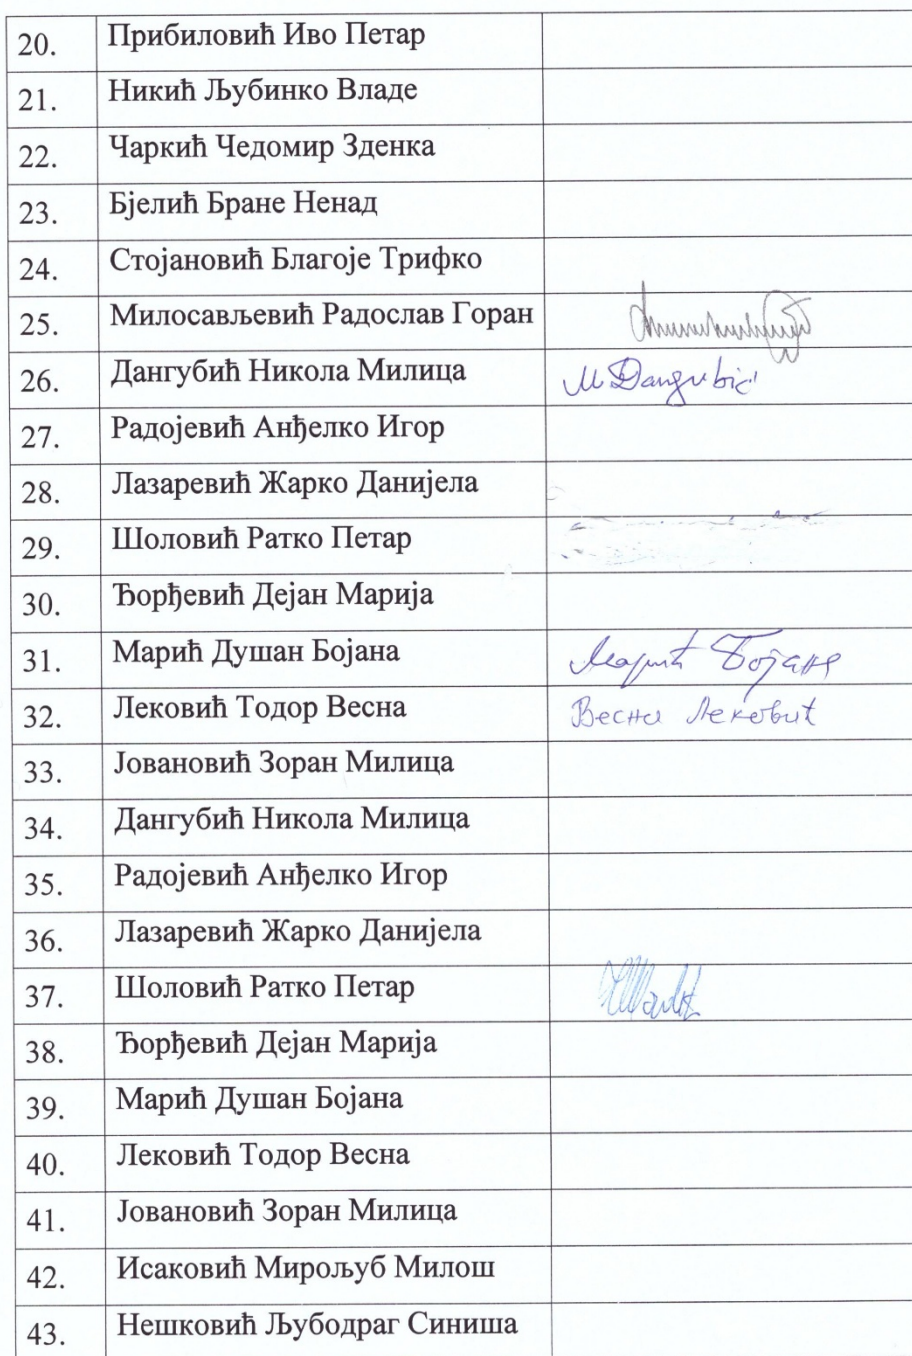 20. Прибиловић Иво Петар
21. Никић Љубинко Владе
22. Чаркић Чедомир Зденка
23. Бјелић Бране Ненад
24. Стојановић Благоје Трифко
25. Милосављевић Радослав Горан
26. Дангубић Никола Милица M Dangubić
27. Радојевић Анђелко Игор
28. Лазаревић Жарко Данијела
29. Шоловић Ратко Петар
30. Ђорђевић Дејан Марија
31. Марић Душан Бојана Марић Бојана
32. Лековић Тодор Весна Весна Лековић
33. Јовановић Зоран Милица
34. Дангубић Никола Милица
35. Радојевић Анђелко Игор
36. Лазаревић Жарко Данијела
37. Шоловић Ратко Петар
38. Ђорђевић Дејан Марија
39. Марић Душан Бојана
40. Лековић Тодор Весна
41. Јовановић Зоран Милица
42. Исаковић Мирољуб Милош
43. Нешковић Љубодраг Синиша